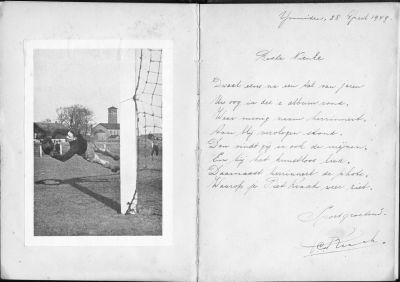 IJmuiden, 28 April 1949.
Beste Nienke
Dwaalt eens na een tal van jaren
Uw oog in dit album rond,
Waar menig naam herinnert,
Aan blij vervlogen stond.
Dan vindt gij is ook de mijnen,
En bij het kunsteloos lied,
Daarnaast herinnert de photo,
Waarop je Piet Kraak weer ziet.
Sportgroetend.
P. Kraak.